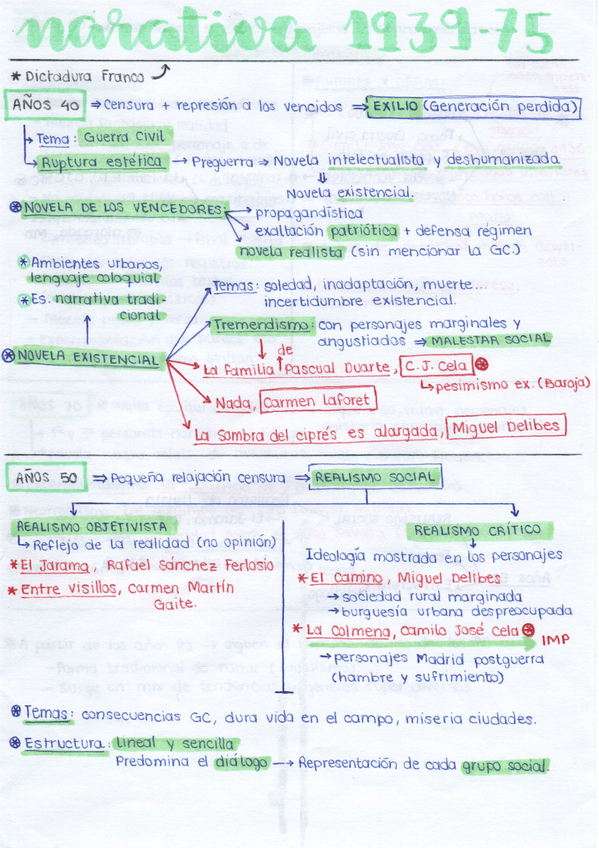 narativa 1939-75
* Dictadura Franco
AÑOS 40 ⇒ Censura + represión a los vencidos ⇒ EXILIO (Generación perdida)
↳ Tema: Guerra Civil
↳ Ruptura estética → Preguerra ⇒ Novela intelectualista y deshumanizada
⇓
Novela existencial.
NOVELA DE LOS VENCEDORES
→ propagandística
→ exaltación patriótica + defensa régimen
novela realista (sin mencionar la GC.)
* Ambientes urbanos,
lenguaje coloquial
* Es. narrativa tradi-
cional
NOVELA EXISTENCIAL
Temas: soledad, inadaptación, muerte...
incertidumbre existencial.
Tremendismo: con personajes marginales y
angustiados ⇒ MALESTAR SOCIAL
de
La familia Pascual Duarte, C.J. Cela
↳ pesimismo ex. (Baroja)
Nada, Carmen Laforet
La Sombra del ciprés es alargada, Miguel Delibes
AÑOS 50 ⇒ Pequeña relajación censura ⇒ REALISMO SOCIAL
REALISMO OBJETIVISTA
↳ Reflejo de la realidad (no opinión)
* El Jarama, Rafael Sánchez Ferlosio
* Entre visillos, Carmen Martín
Gaite.
REALISMO CRÍTICO
Ideología mostrada en los personajes
* El Camino, Miguel Delibes
→ sociedad rural marginada
→ burguesía urbana despreocupada
* La Colmena, Camilo José Cela
IMP
→ personajes Madrid postguerra
(hambre y sufrimiento)
Temas: consecuencias GC, dura vida en el campo, miseria ciudades.
Estructura: Lineal y sencilla
Predomina el diálogo → Representación de cada grupo social.